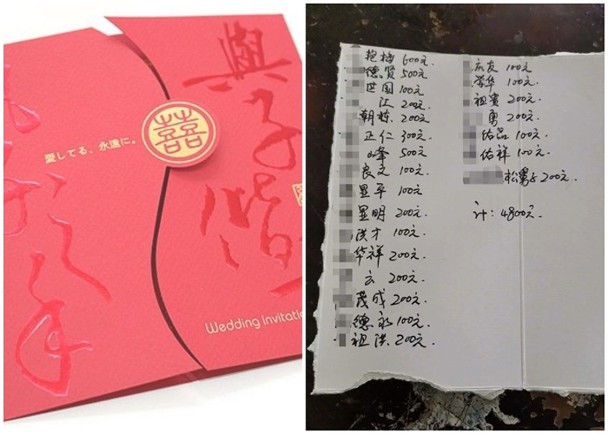 與子偕
愛してる、永遠に。
囍
Wedding invitatio
艳梅 600元.
德贤 500元
世国 100元
江 200元.
朝栋. 200元
正仁 300元
峰 500元
良文 100元.
显平 100元
显明 200元.
洪才 100元
华祥 200元.
云 200元.
茂成 200元.
德永 100元.
祖洪. 200元.
庆友 100元.
荣华 100元.
祖贵 200元.
勇 200元.
佑品 100元.
佑祥 100元.
松男子 200元.
计: 4800元.